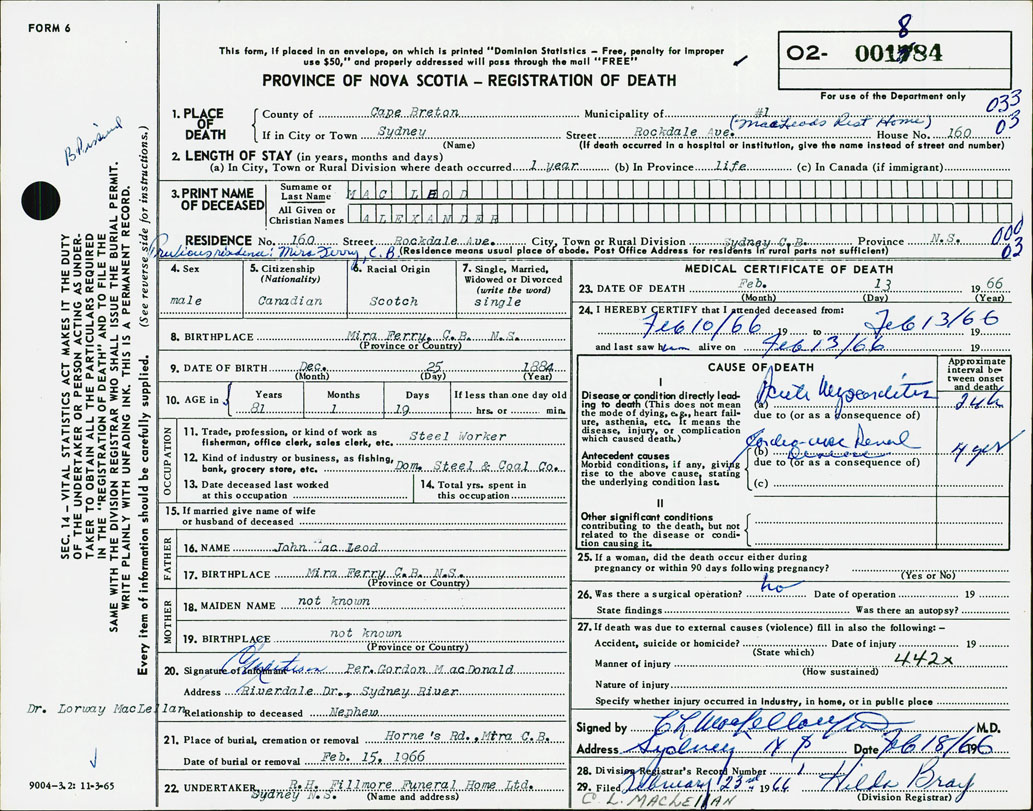 FORM 6
This form, if placed in an envelope, on which is printed "Dominion Statistics – Free, penalty for improper
use $50," and properly addressed will pass through the mail "FREE"
PROVINCE OF NOVA SCOTIA – REGISTRATION OF DEATH
8
O2- 001784
For use of the Department only
033
03
1. PLACE OF DEATH
County of Cape Breton Municipality of #1
(MacLeods Rest Home)
If in City or Town Sydney Street Rockdale Ave. House No. 160
(Name) (If death occurred in a hospital or institution, give the name instead of street and number)
2. LENGTH OF STAY (in years, months and days)
(a) In City, Town or Rural Division where death occurred 1 year (b) In Province life (c) In Canada (if immigrant)
3. PRINT NAME OF DECEASED
Surname or Last Name MAC LEOD
All Given or Christian Names ALEXANDER
000
03
RESIDENCE No. 160 Street Rockdale Ave. City, Town or Rural Division Sydney C.B. Province N.S.
Mira Ferry, C.B. (Residence means usual place of abode. Post Office Address for residents in rural parts not sufficient)
4. Sex
male
5. Citizenship
(Nationality)
Canadian
6. Racial Origin
Scotch
7. Single, Married,
Widowed or Divorced
(write the word)
single
8. BIRTHPLACE Mira Ferry, C.B. N.S.
(Province or Country)
9. DATE OF BIRTH Dec. 25 1884
(Month) (Day) (Year)
10. AGE in
Years Months Days If less than one day old
81 1 19 hrs. or min.
OCCUPATION
11. Trade, profession, or kind of work as
fisherman, office clerk, sales clerk, etc. Steel Worker
12. Kind of industry or business, as fishing,
bank, grocery store, etc. Dom. Steel & Coal Co.
13. Date deceased last worked
at this occupation
14. Total yrs. spent in
this occupation
15. If married give name of wife
or husband of deceased
FATHER
16. NAME John Mac Leod
17. BIRTHPLACE Mira Ferry C.B. N.S.
(Province or Country)
MOTHER
18. MAIDEN NAME not known
19. BIRTHPLACE not known
(Province or Country)
20. Signature of Informant Per. Gordon MacDonald
Address Riverdale Dr., Sydney River
Relationship to deceased Nephew
21. Place of burial, cremation or removal Horne's Rd., Mira C.B.
Date of burial or removal Feb. 15, 1966
22. UNDERTAKER R.H. Fillmore Funeral Home Ltd.
Sydney N.S. (Name and address)
MEDICAL CERTIFICATE OF DEATH
23. DATE OF DEATH Feb. 13 1966
(Month) (Day) (Year)
24. I HEREBY CERTIFY that I attended deceased from:
Feb 10/66 19 to Feb 13/66 19
and last saw him alive on Feb 13/66 19
CAUSE OF DEATH
Approximate
interval be-
tween onset
and death
I
Disease or condition directly lead-
ing to death (This does not mean
the mode of dying, e.g., heart fail-
ure, asthenia, etc. It means the
disease, injury, or complication
which caused death.)
(a) Acute Myocarditis
due to (or as a consequence of)
Antecedent causes
Morbid conditions, if any, giving
rise to the above cause, stating
the underlying condition last.
(b) Cardio-vasc Renal
Disease
due to (or as a consequence of)
(c)
4 yrs
II
Other significant conditions
contributing to the death, but not
related to the disease or condi-
tion causing it.
25. If a woman, did the death occur either during
pregnancy or within 90 days following pregnancy?
(Yes or No)
26. Was there a surgical operation? no Date of operation 19
State findings Was there an autopsy?
27. If death was due to external causes (violence) fill in also the following: –
Accident, suicide or homicide? Date of injury 19
(State which)
Manner of injury 442x
(How sustained)
Nature of injury
Specify whether injury occurred in industry, in home, or in public place
Signed by M.D.
Address Sydney N S Date Feb 18/66 196
28. Division Registrar's Record Number
29. Filed February 23rd 1966 Hilda Bray
(Division Registrar)
C. L. MACLELLAN
SEC. 14 – VITAL STATISTICS ACT MAKES IT THE DUTY
OF THE UNDERTAKER OR PERSON ACTING AS UNDER-
TAKER TO OBTAIN ALL THE PARTICULARS REQUIRED
IN THE "REGISTRATION OF DEATH" AND TO FILE THE
SAME WITH THE DIVISION REGISTRAR WHO SHALL ISSUE THE BURIAL PERMIT.
WRITE PLAINLY WITH UNFADING INK. THIS IS A PERMANENT RECORD.
Every item of information should be carefully supplied. (See reverse side for instructions.)
Dr. Lorway MacLellan
9004–3.2: 11-3-65